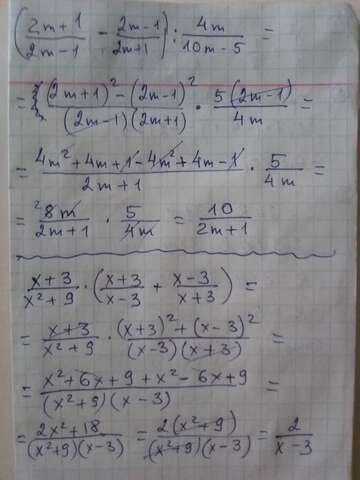 (2m+1/2m-1 - 2m-1/2m+1) : 4m/10m-5 =
= (2m+1)²-(2m-1)²/(2m-1)(2m+1) · 5(2m-1)/4m =
= 4m²+4m+1-4m²+4m-1/2m+1 · 5/4m =
= ²8m/2m+1 · 5/4m = 10/2m+1
x+3/x²+9 · (x+3/x-3 + x-3/x+3) =
= x+3/x²+9 · (x+3)²+(x-3)²/(x-3)(x+3) =
= x²+6x+9+x²-6x+9/(x²+9)(x-3) =
= 2x²+18/(x²+9)(x-3) = 2(x²+9)/(x²+9)(x-3) = 2/x-3